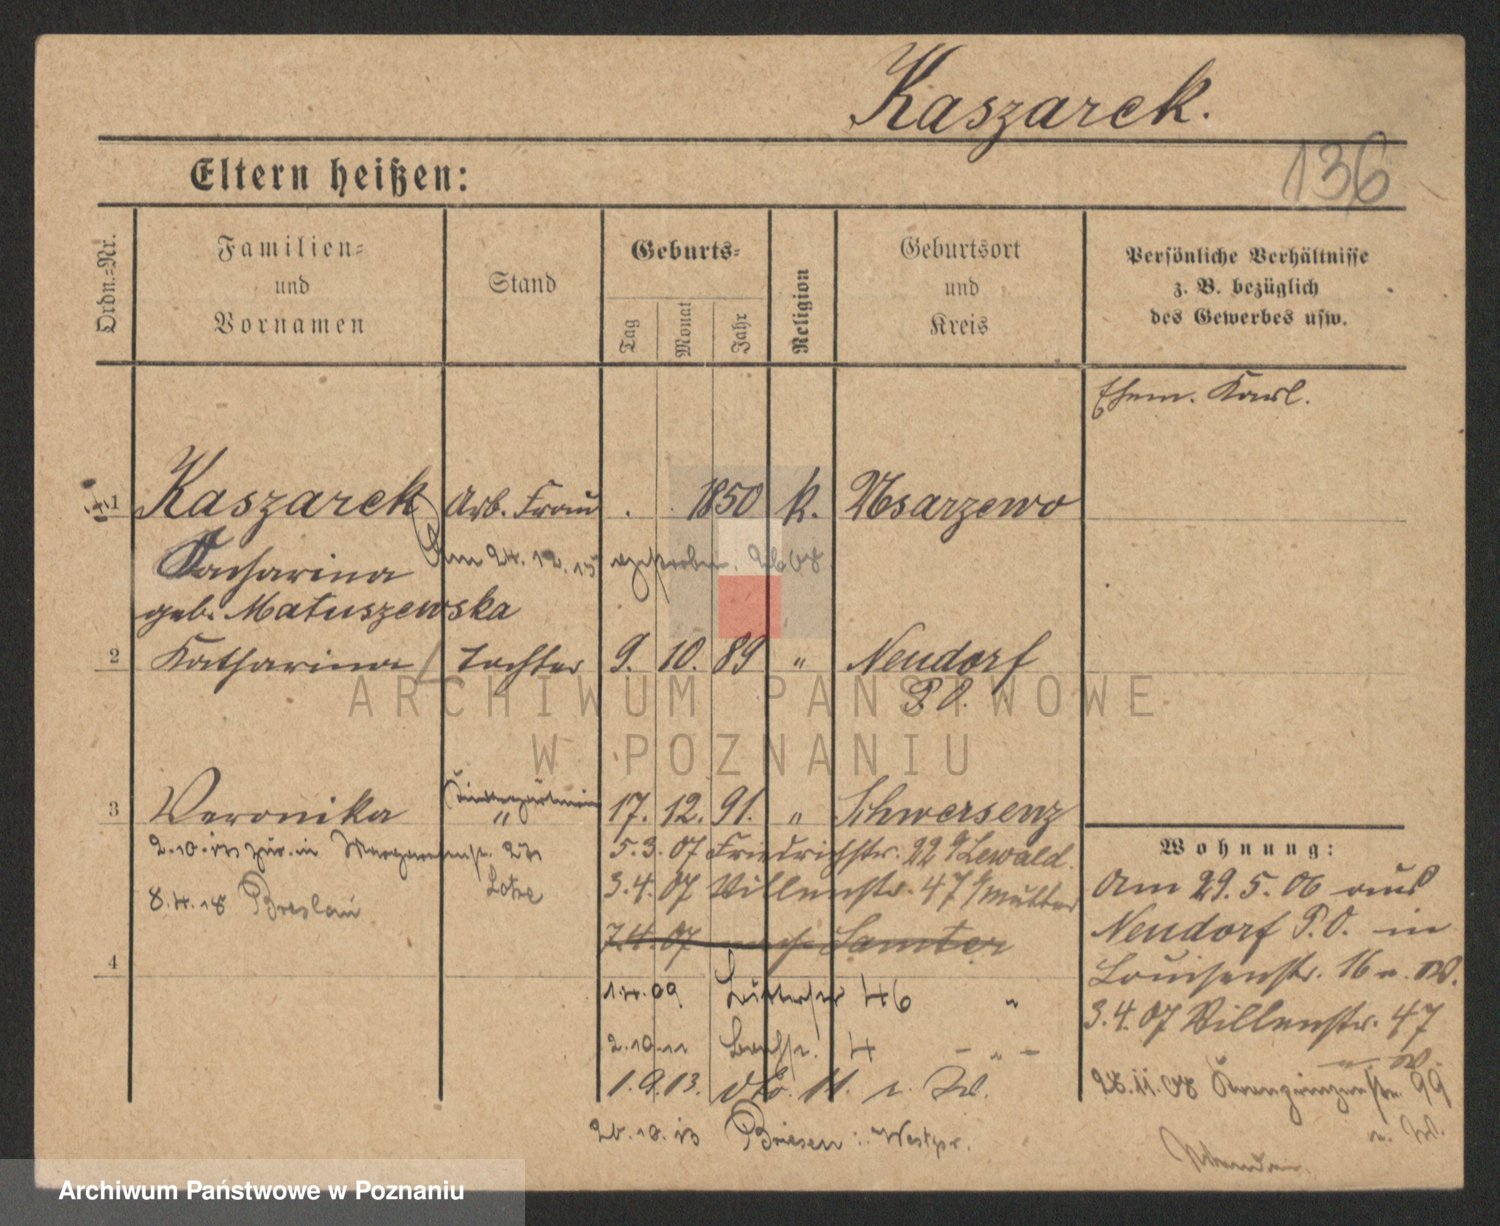 Kaszarek.
136
Eltern heißen:
Ordn.=Nr.
Familien=
und
Vornamen
Stand
Geburts=
Tag
Monat
Jahr
Religion
Geburtsort
und
Kreis
Persönliche Verhältnisse
z. B. bezüglich
des Gewerbes usw.
Ehem. Karl.
1 Kaszarek Arb. Frau 1850 k.
Katharina am 24. 12. 15
geb. Matuszewska
2 Katharina Tochter 9. 10. 89 " Neudorf
P. O.
3 Veronika " 17. 12. 91. " Schwersenz
2.10.13 zur. in
5.3.07 Friedrichstr. 22 b/Lewald.
3.4.07 Villenstr. 47 b/Mutter
8.4.18 Breslau
7.4.07 nach Samter
4
1.4.09 46 "
2.10.11 4 - " -
1.9.13. dto. 11. n. W.
20.10.13 Briesen : Westpr.
Wohnung:
Am 29.5.06 aus
Neudorf P.O. in
Louisenstr. 16 n. W.
3.4.07 Villenstr. 47
n. W.
28.11.08 99
n. W.
ARCHIWUM PAŃSTWOWE
W POZNANIU
Archiwum Państwowe w Poznaniu